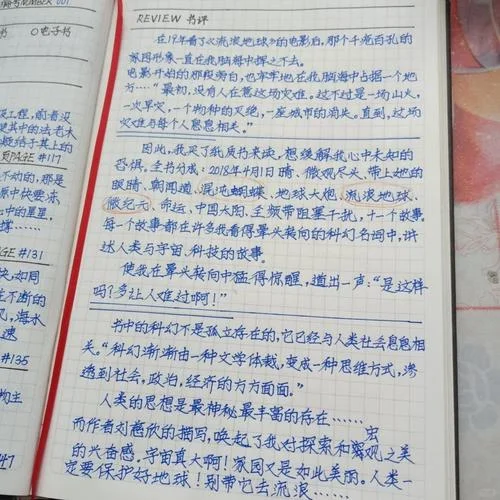 编号NUMBER 001
书 O电子书
REVIEW 书评
在19年看了《流浪地球》的电影后,那个千疮百孔的
家园形象一直在我脑海中挥之不去。
电影开始的那段旁白,也牢牢地在我脑海中占据一个地
方…"最初,没有人在意这场灾难。这不过是一场山火,
一次旱灾,一个物种的灭绝,一座城市的消失。直到,这场
灾难与每个人息息相关。"
因此,我买了纸质书来读,想缓解我心中未知的
恐惧。全书分成:2018年4月1日晴、微观尽头、带上她的
眼睛、朝闻道、混沌蝴蝶、地球大炮、流浪地球、
微纪元、命运、中国太阳、全频带阻塞干扰,十一个故事。
每一个故事都在许多我看得晕头转向的科幻名词中,讲
述人类与宇宙、科技的故事。
使我在晕头转向中猛得惊醒,道出一声:"是这样
吗?多让人难过啊!"
书中的科幻不是孤立存在的,它已经与人类社会息息相
关。"科幻渐渐由一种文学体裁,变成一种思维方式,渗
透到社会,政治,经济的方方面面。"
人类的思想是最神秘最丰富的存在……
而作者刘慈欣的描写,唤起了我对探索和宏观之美
的兴奋感。宇宙真大啊!家园又是如此美丽。人类一
定要保护好地球!别带它去流浪……
工程,前者没
其中的法老木
凝结于其上的
页PAGE #117
不动的,那是
原中快要冻
中的里星,
GE #131
快,如同
在不断的
风,海水
速
#135
物主